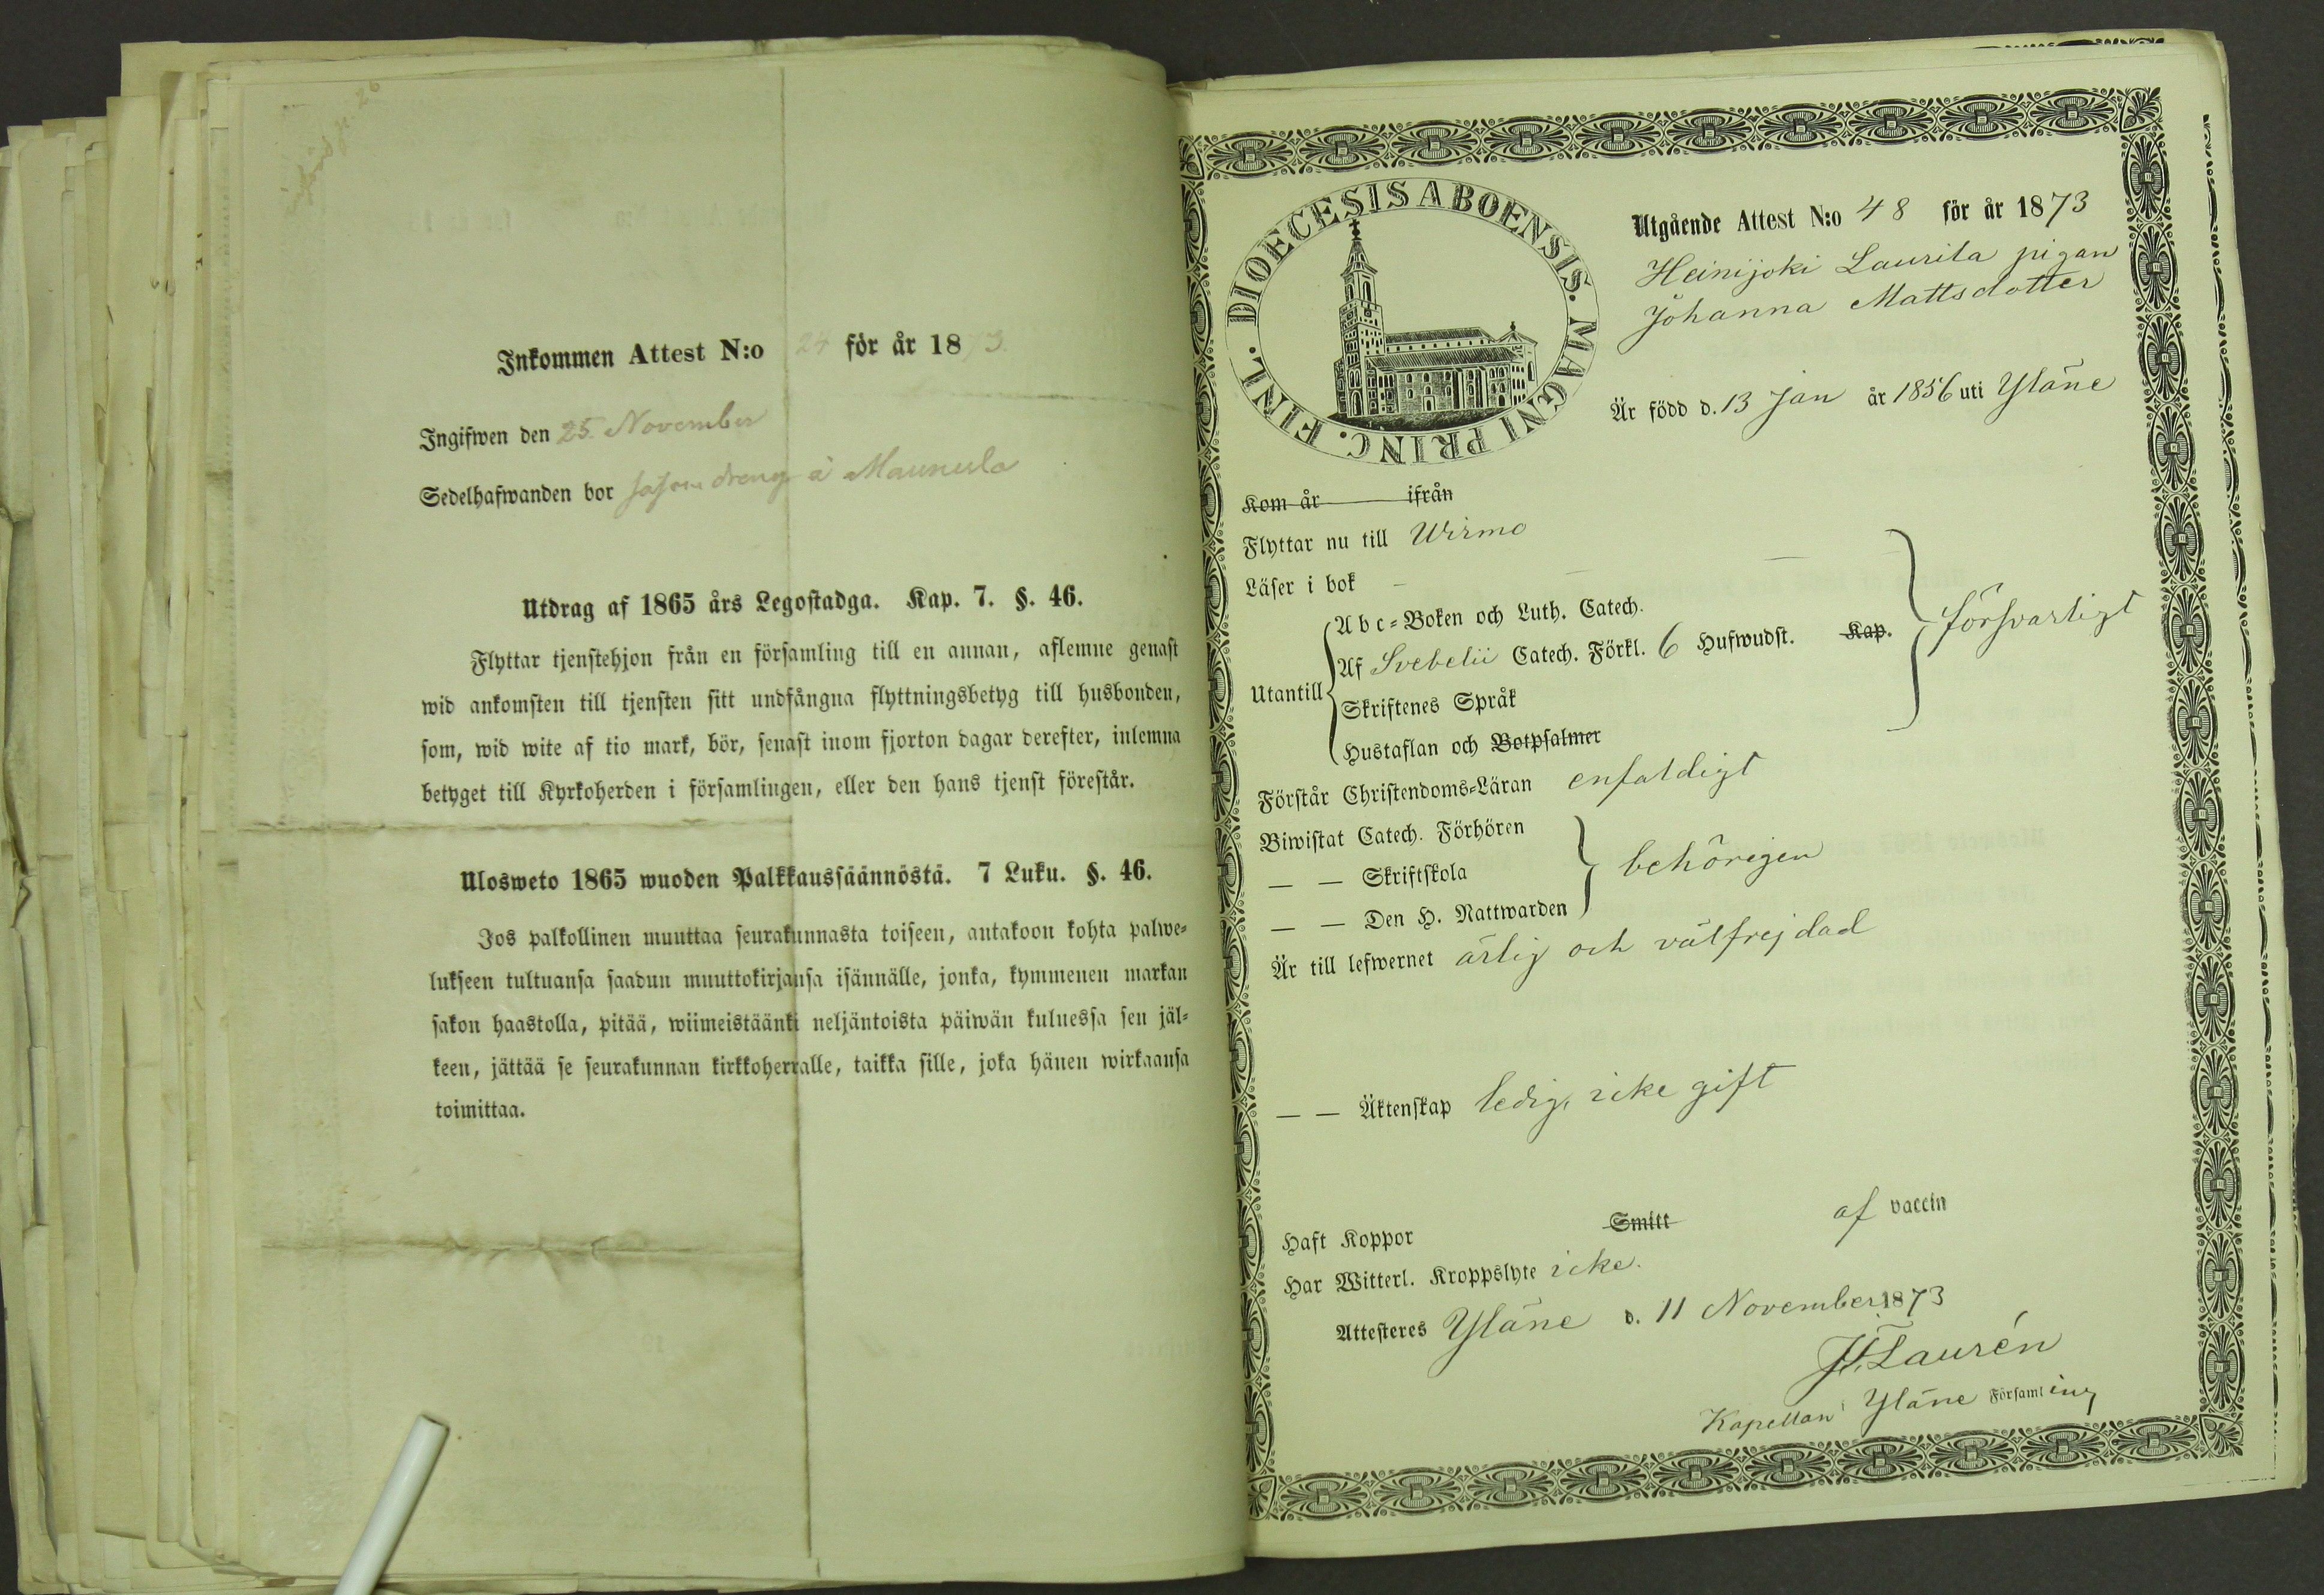 Inkommen Attest N:o 24 för år 1873.
Ingifwen den 25. November
Sedelhafwanden bor såsom dreng å Maunula
Utdrag af 1865 års Legostadga. Kap. 7. §. 46.
Flyttar tjenstehjon från en församling till en annan, aflemne genast
wid ankomsten till tjensten sitt undfångna flyttningsbetyg till husbonden,
som, wid wite af tio mark, bör, senast inom fjorton dagar derefter, inlemna
betyget till Kyrkoherden i församlingen, eller den hans tjenst förestår.
Ulosweto 1865 wuoden Palkkaussäännöstä. 7 Luku. §. 46.
Jos palkollinen muuttaa seurakunnasta toiseen, antakoon kohta palwe-
lukseen tultuansa saadun muuttokirjansa isännälle, jonka, kymmenen markan
sakon haastolla, pitää, wiimeistäänki neljäntoista päiwän kuluessa sen jäl-
keen, jättää se seurakunnan kirkkoherralle, taikka sille, joka hänen wirkaansa
toimittaa.
DIOECESIS ABOENSIS. MAGNI PRINC. FINL.
Utgående Attest N:o 48 för år 1873
Heinijoki Laurila pigan
Johanna Mattsdotter
Är född d. 13 Jan år 1856 uti Yläne
Kom år ifrån
Flyttar nu till Wirmo
Läser i bok
Utantill
Abc-Boken och Luth. Catech.
Af Svebelii Catech. Förkl. 6 Hufwudst. Kap.
Skriftenes Språk
Hustaflan och Botpsalmer
försvarligt
Förstår Christendoms-Läran enfaldigt
Biwistat Catech. Förhören
— — Skriftskola
— — Den H. Nattwarden
behörigen
Är till lefwernet ärlig och välfrejdad
— — Äktenskap ledig, icke gift
Haft Koppor Smitt af vaccin
Har Witterl. Kroppslyte icke.
Attesteres Yläne d. 11 November 1873
Laurén
Kapellan i Yläne Församling